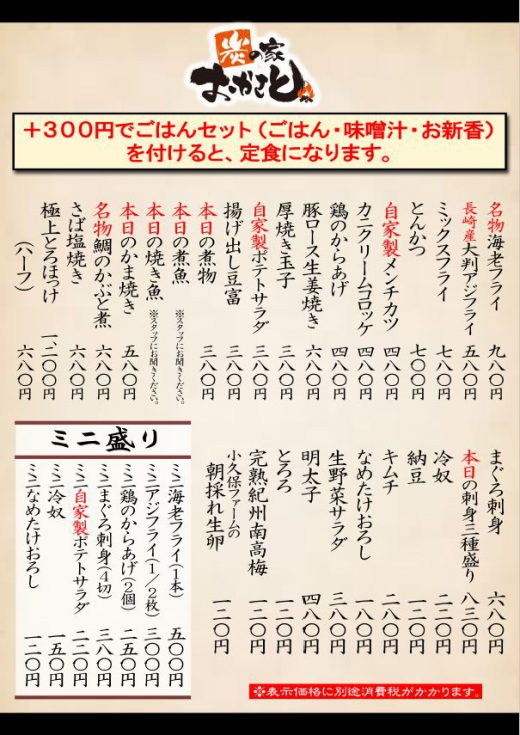 炭の家
おかこし
＋３００円でごはんセット（ごはん・味噌汁・お新香）
を付けると、定食になります。
名物海老フライ 九八〇円
長崎産大判アジフライ 五八〇円
ミックスフライ 七〇〇円
とんかつ 七〇〇円
自家製メンチカツ 四八〇円
カニクリームコロッケ 四八〇円
鶏のからあげ 四八〇円
豚ロース生姜焼き 六八〇円
厚焼き玉子 三八〇円
自家製ポテトサラダ 三八〇円
揚げ出し豆富 三八〇円
本日の煮物 三八〇円
本日の煮魚 ※スタッフにお聞きください。
本日の焼き魚 ※スタッフにお聞きください。
本日のかま焼き 五八〇円
名物鯛のかぶと煮 六八〇円
さば塩焼き 六八〇円
極上とろほっけ 一二〇〇円
（ハーフ） 六八〇円
まぐろ刺身 六八〇円
本日の刺身三種盛り 八三〇円
冷奴 二二〇円
納豆 一八〇円
キムチ 二八〇円
なめたけおろし 一八〇円
生野菜サラダ 三八〇円
明太子 四八〇円
とろろ 一二〇円
完熟紀州南高梅 一二〇円
小久保ファームの
朝採れ生卵 一二〇円
ミニ盛り
ミニ海老フライ(1本) 五〇〇円
ミニアジフライ(1／2枚) 三〇〇円
ミニ鶏のからあげ(2個) 二五〇円
ミニまぐろ刺身(4切) 三八〇円
ミニ自家製ポテトサラダ 二二〇円
ミニ冷奴 一五〇円
ミニなめたけおろし 一二〇円
※表示価格に別途消費税がかかります。